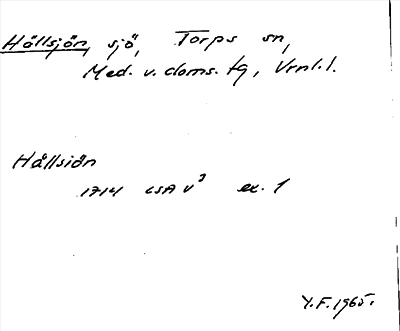 Hållsjön, sjö, Torps sn,
Med. v. doms. tg, Vrnl. l.
Hållsiön
1714 LSA V³ ex. 1
Y.F. 1965.